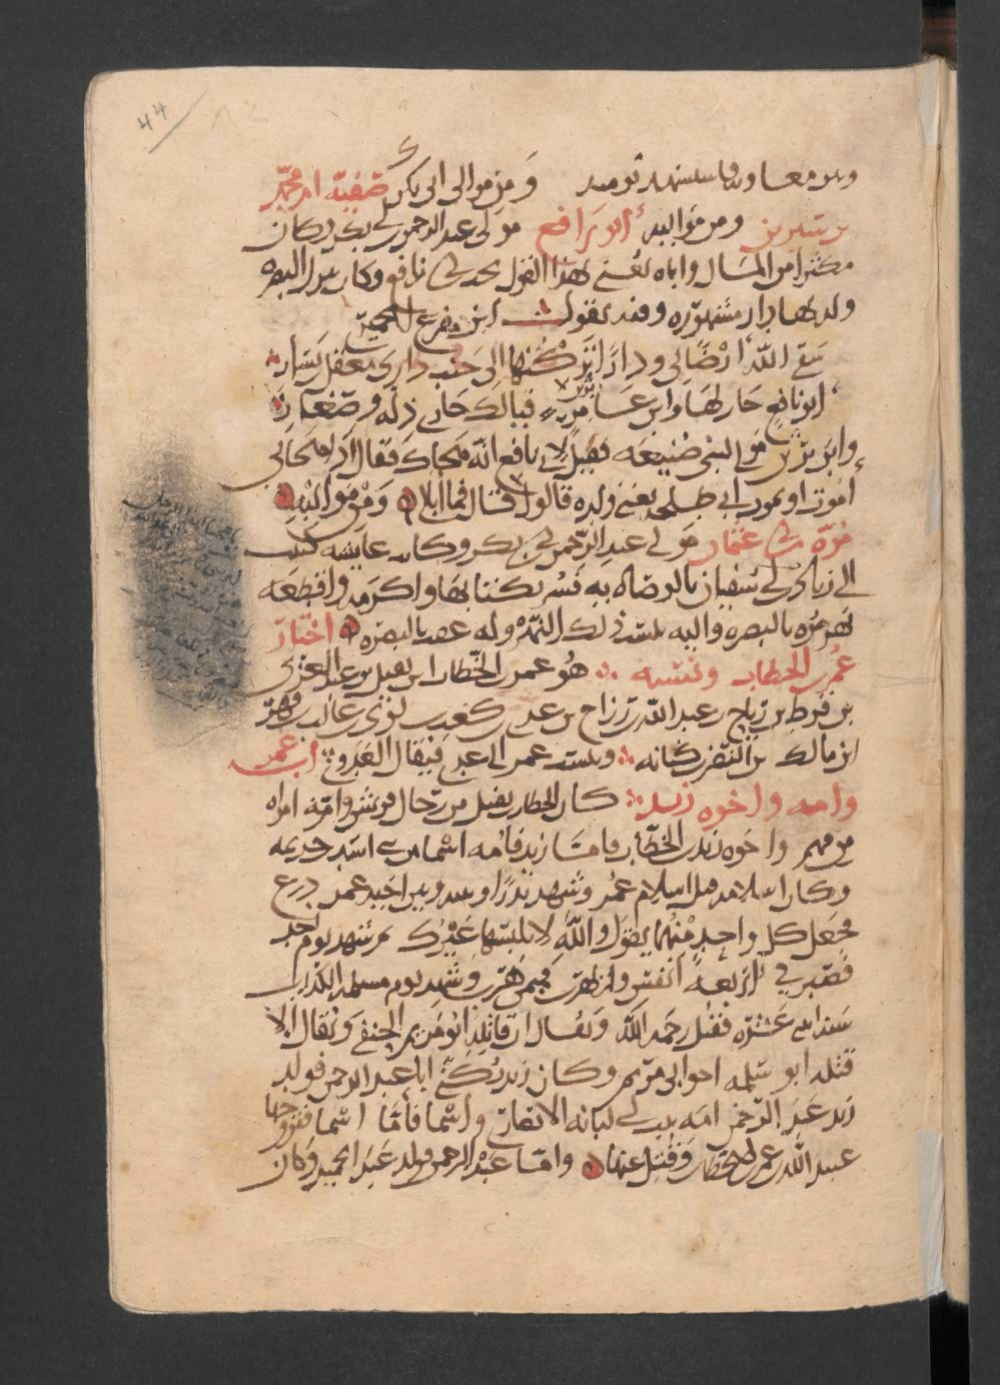 ٤٤
ومن موالى ابى بكر صفية ام محمد
بن سيرين ومن مواليه ابو رافع مولى عبد الرحمن بن ابى بكر وكان
مكثرا من المال واياه يعنى بهذا القول نافع وكان ينزل البصره
وله بها دار مشهوره وفيه يقول ابن مفرغ الحميرى
سقى الله ارضا لى ودارا تركتها الى جنب دارى معقل بن يسار
ابو نافع جار لها وابن برثن فيالك جارى ذله وصغار
وابن برثن مولى لبنى ضبيعه فقيل لابى نافع انه هجاك فقال اذا هجانى
اموت او يموت ابى طلحه يعنى ولده قالوا لا قال فما ابالى ومن مواليه
مره بن ابى عثمان مولى عبد الرحمن بن ابى بكر وكانت عايشه كتبت
الى زياد بن ابى سفيان بالوصاه به فسر بكتابها واكرمه واقطعه
نهر مره بالبصره واليه ينسب ذلك النهر وله عقب بالبصره اخبار
عمر بن الخطاب ونسبه هو عمر بن الخطاب ابن نفيل بن عبد العزى
بن قرط بن رياح بن عبد الله بن رزاح بن عدى بن كعب بن لوى بن غالب بن فهر
ابن مالك بن النضر بن كنانه وينسب عمر الى عدى فيقال العدوى اب عمر
وامه واخوه زيد كان الخطاب بن نفيل من رجال قريش وامه امراه
من فهم واخوه زيد بن الخطاب فامـا زيد فامه اسما من بنى اسد بن خزيمه
وكان اسلامه قبل اسلام عمر وشهد بدرا وبينه وبين اخيه عمر درع
فجعل كل واحد منهما يقول والله لا يلبسها غيرك ثم شهد يوم احد
فصبر فى اربعه انفس ولم يهرب فيمن هرب وشهد يوم مسيلمه الكذاب
سنه اثنى عشره فقتل رحمه الله ويقال ان قاتله ابو مريم الحنفى ويقال بل
قتله ابو سلمه اخو ابى مريم وكان زيد يكنى ابا عبد الرحمن فولد
زيد عبد الرحمن امه بنت ابى لبابه الانصارى واسما فاما اسما فتزوجها
عبيد الله بن عمر بن الخطاب وقتل عنها واما عبد الرحمن فولد عبد الحميد وكان